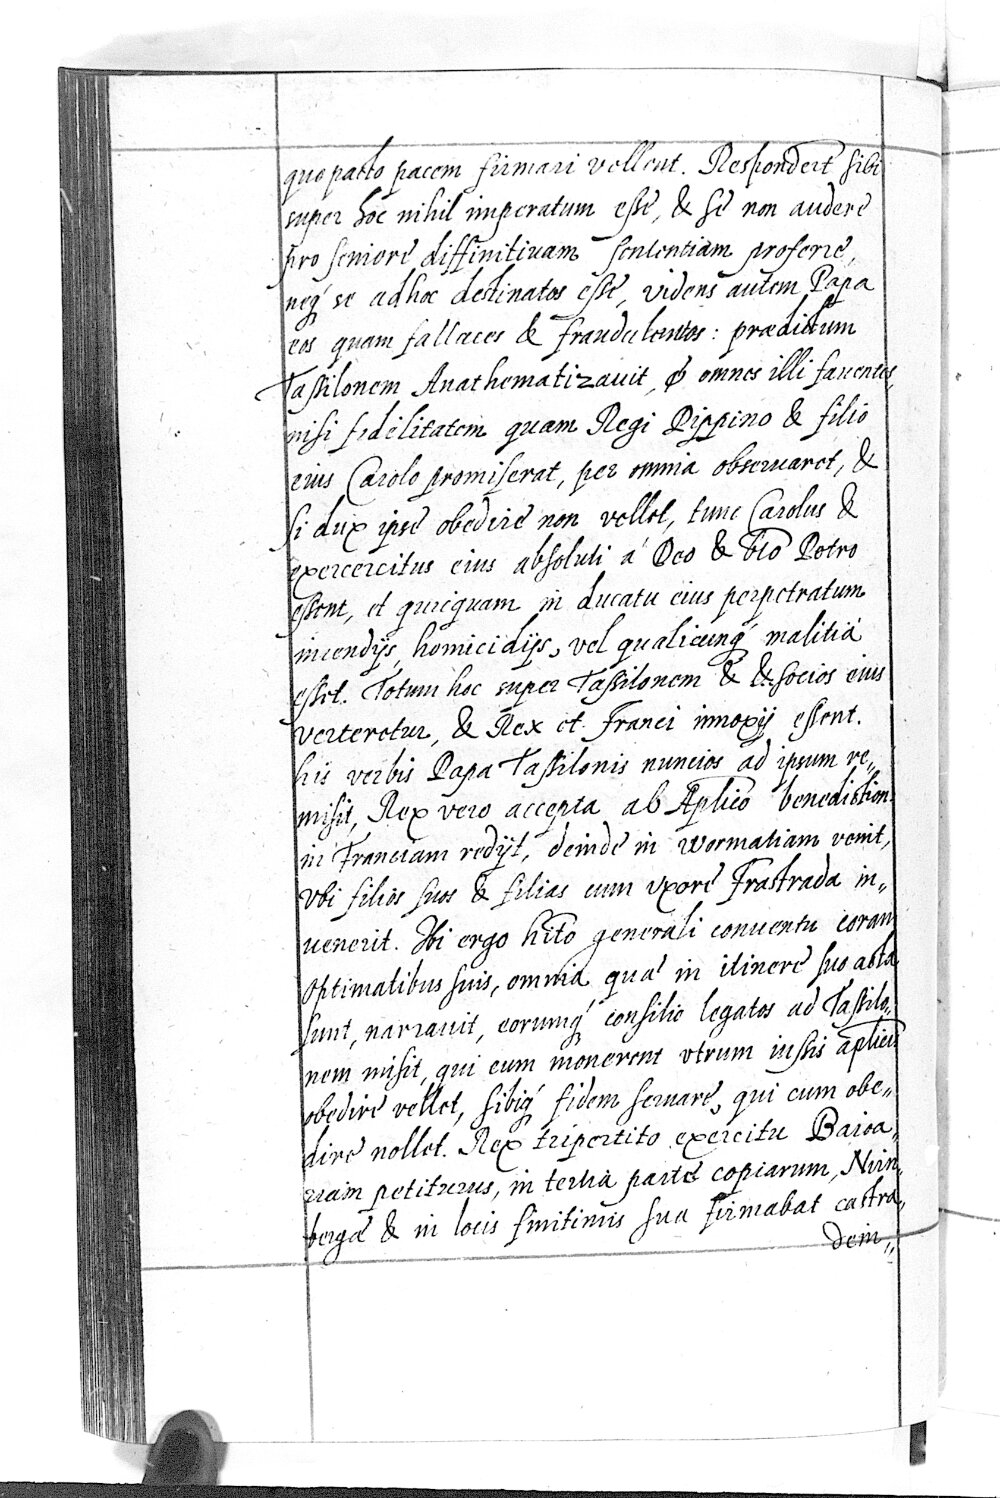 quo pacto pacem firmari vellent. Respondert sibi
super hoc nihil imperatum esse, & se non audere
pro seniore diffinitivam sententiam proferre,
neq́ se ad hoc destinatos esse, videns autem Papa
eos quam fallaces & fraudulentos: prædictum
Tassilonem Anathematizauit, & omnes illi fauentes,
nisi fidelitatem quam Regi Pippino & filio
eius Carolo promiserat, per omnia obseruaret, &
si dux ipse obedire non vellet, tunc Carolus &
exercercitus eius absoluti á Deo & bto Petro
essent, et quicquam in ducatu eius perpetratum
incendijs, homicidijs, vel qualicunq́ malitiá
esset. Totum hoc super Tassilonem & & socios eius
verteretur, & Rex et Franci innoxij essent.
his verbis Papa Tassilonis nuncios ad ipsum re„
misit, Rex vero accepta ab Aplico benediction
in Franciam redijt, deinde in Wormatiam venit,
vbi filios suos & filias cum vxore Frastrada in„
uenerit. Ibi ergo hito generali conuentu coram
Optimatibus suis, omnia quæ in itinere suo acta
sunt, narrauit, eorumq́ consilio legatos ad Tassilo„
nem misit, qui eum monerent vtrum iussis aplicis
obedire vellet, sibiq́ fidem seruare, qui cum obe„
dire nollet. Rex tripertito exercitu Baioa„
riam petiturus, in tertia parte copiarum, Nurn„
bergæ & in locis finitimis sua firmabat castra,
dein„